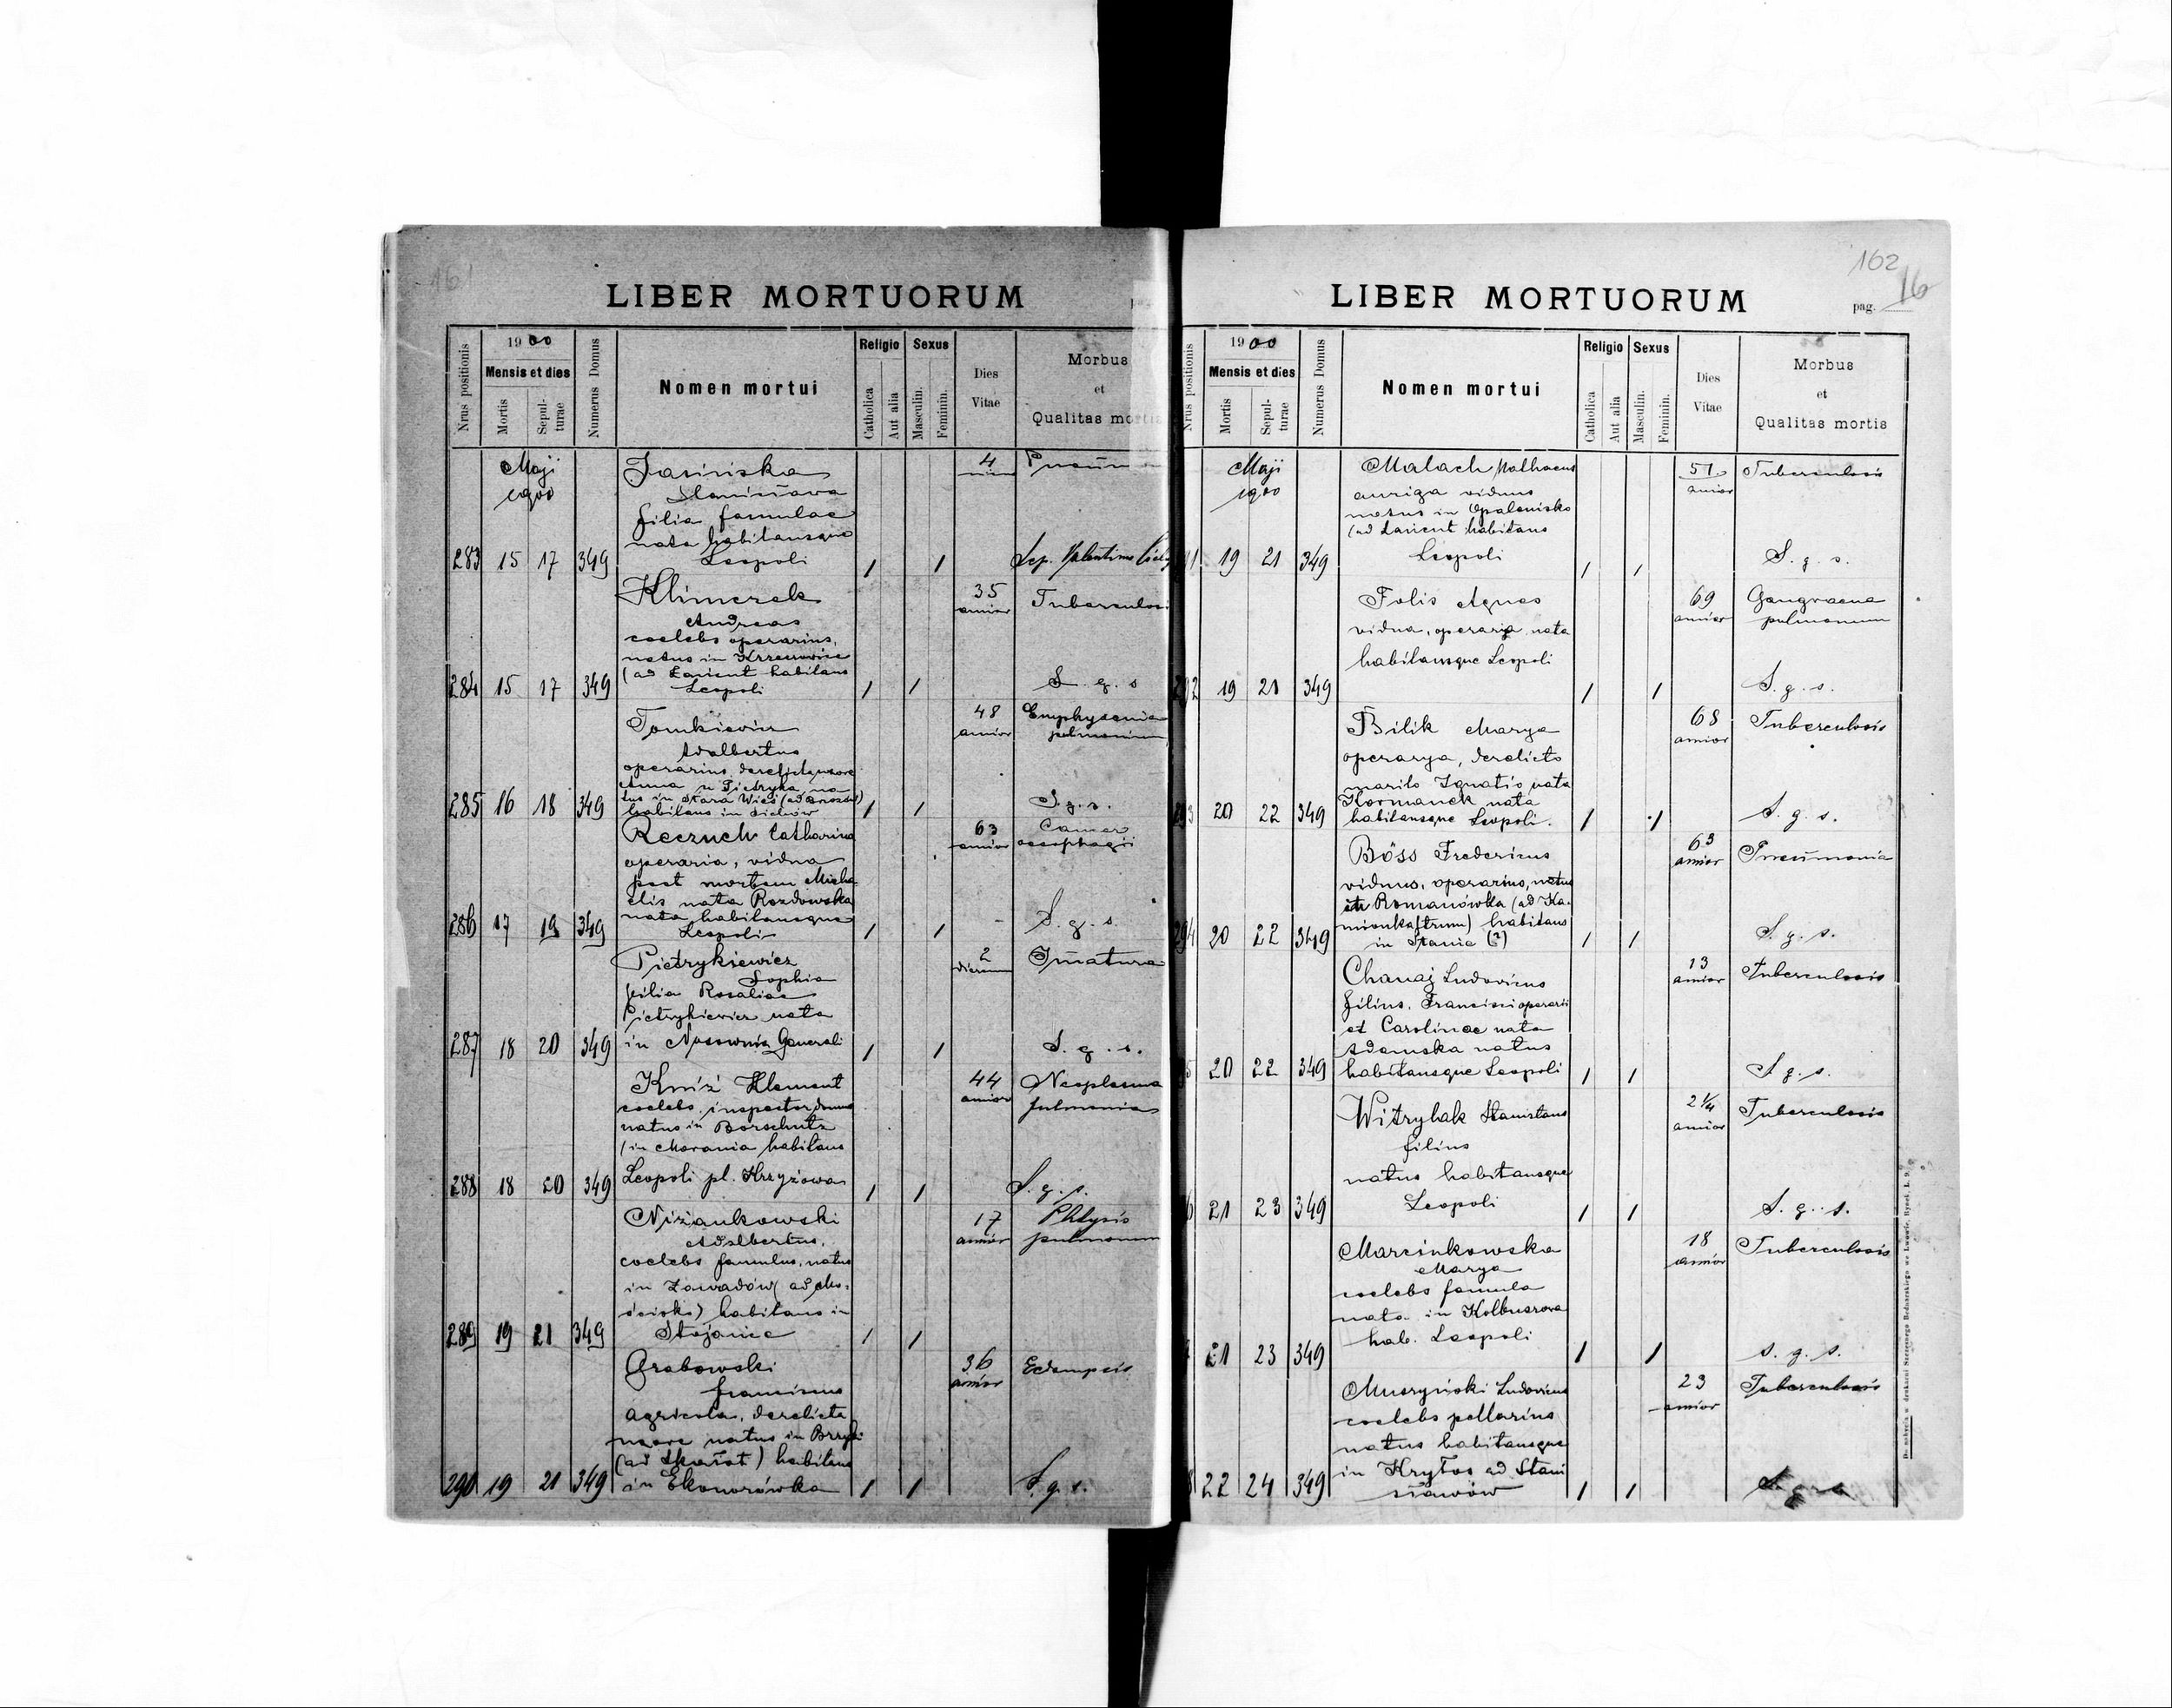 161
LIBER MORTUORUM
Nrus positionis
1900
Mensis et dies
Mortis
Sepulturae
Numerus Domus
Nomen mortui
Religio
Catholica
Aut alia
Sexus
Masculin.
Feminin.
Dies
Vitae
Morbus
et
Qualitas mortis
Maji
1900
Jasińska
Stanisława
filia famulae
nata habitansque
Leopoli
4
283 15 17 349 / /
Sep. Valentinus
Klimczak
Andreas
coelebs operarius,
natus in
(ad Łańcut habitans
Leopoli
35
annor
Tuberculosi
284 15 17 349 / / S. g. s
Tomkiewicz
Adalbertus
operarius, derelicta uxore
Anna n Pietryka, na
tus in Stara Wieś (ad Brozów)
habitans in
48
annor
Emphysema
pulmonum
285 16 18 349 / / S. g. s.
Reczuch Catharina
operaria, vidua
post mortem Micha
elis nata Rozdowska
nata habitansque
Leopoli
63
annor
Cancer
oesophagii
286 17 19 349 / / S. g. s.
Pietrykiewicz
Sophia
filia Rosaliae
Pietrykiewicz nata
in Generali
2
dierum
Imatura
287 18 20 349 / / S. g. s.
Kniż Klement
coelebs, inspector domus
natus in Borschutz
(in Moravia habitans
Leopoli pl. Krzyżowa
44
annor
Neoplasma
pulmonis
288 18 20 349 / / S. g. s.
Niżankowski
Adalbertus,
coelebs famulus, natus
in Zawadów (ad Mo-
ściska) habitans in
Stojańce
17
annor
Phtysis
pulmonum
289 19 21 349 / /
Grabowski
Franciscus
agricola, derelicta
uxore natus in
(ad Skałat) habitans
in Ekonorówka
36
annor
Eclampsis
290 19 21 349 / / S. g. s.
162
16
LIBER MORTUORUM
pag.
Nrus positionis
1900
Mensis et dies
Mortis
Sepulturae
Numerus Domus
Nomen mortui
Religio
Catholica
Aut alia
Sexus
Masculin.
Feminin.
Dies
Vitae
Morbus
et
Qualitas mortis
Maji
1900
Malach Mathaeus
auriga viduus
natus in Opalenisko
(ad Łańcut habitans
Leopoli
51
annor
Tuberculosis
1 19 21 349 / / S. g. s.
Folis Agnes
vidua, operaria, nata
habitansque Leopoli
69
annor
Gangraena
pulmonum
2 19 21 349 / / S. g. s.
Bilik Marya
operarya, derelicto
marito Ignatio nata
Kormanek nata
habitansque Leopoli.
68
annor
Tuberculosis
3 20 22 349 / / S. g. s.
Böss Fredericus
viduus, operarius, natus
in Romanówka (ad Ka-
mionka strum) habitans
in Stanie (?)
63
annor
Pneumonia
4 20 22 349 / / S. g. s.
Chanaj Ludovicus
filius, Francisci operarii
et Carolinae nata
Adamska natus
habitansque Leopoli
13
annor
Tuberculosis
5 20 22 349 / / S. g. s.
Witryhak Stanislaus
filius
natus habitansque
Leopoli
2 1/4
annor
Tuberculosis
6 21 23 349 / / S. g. s.
Marcinkowska
Marya
coelebs famula
nata in Kolbuszowa
hab. Leopoli
18
annor
Tuberculosis
21 23 349 / / S. g. s.
Muszyński Ludovicus
coelebs pellarius
natus habitansque
in Kryłos ad Stani
sławów
23
annor
Tuberculosis
8 22 24 349 / / S. g. s
Do nabycia w drukarni Szczęsnego Bednarskiego we Lwowie, Rynek, L. 9.